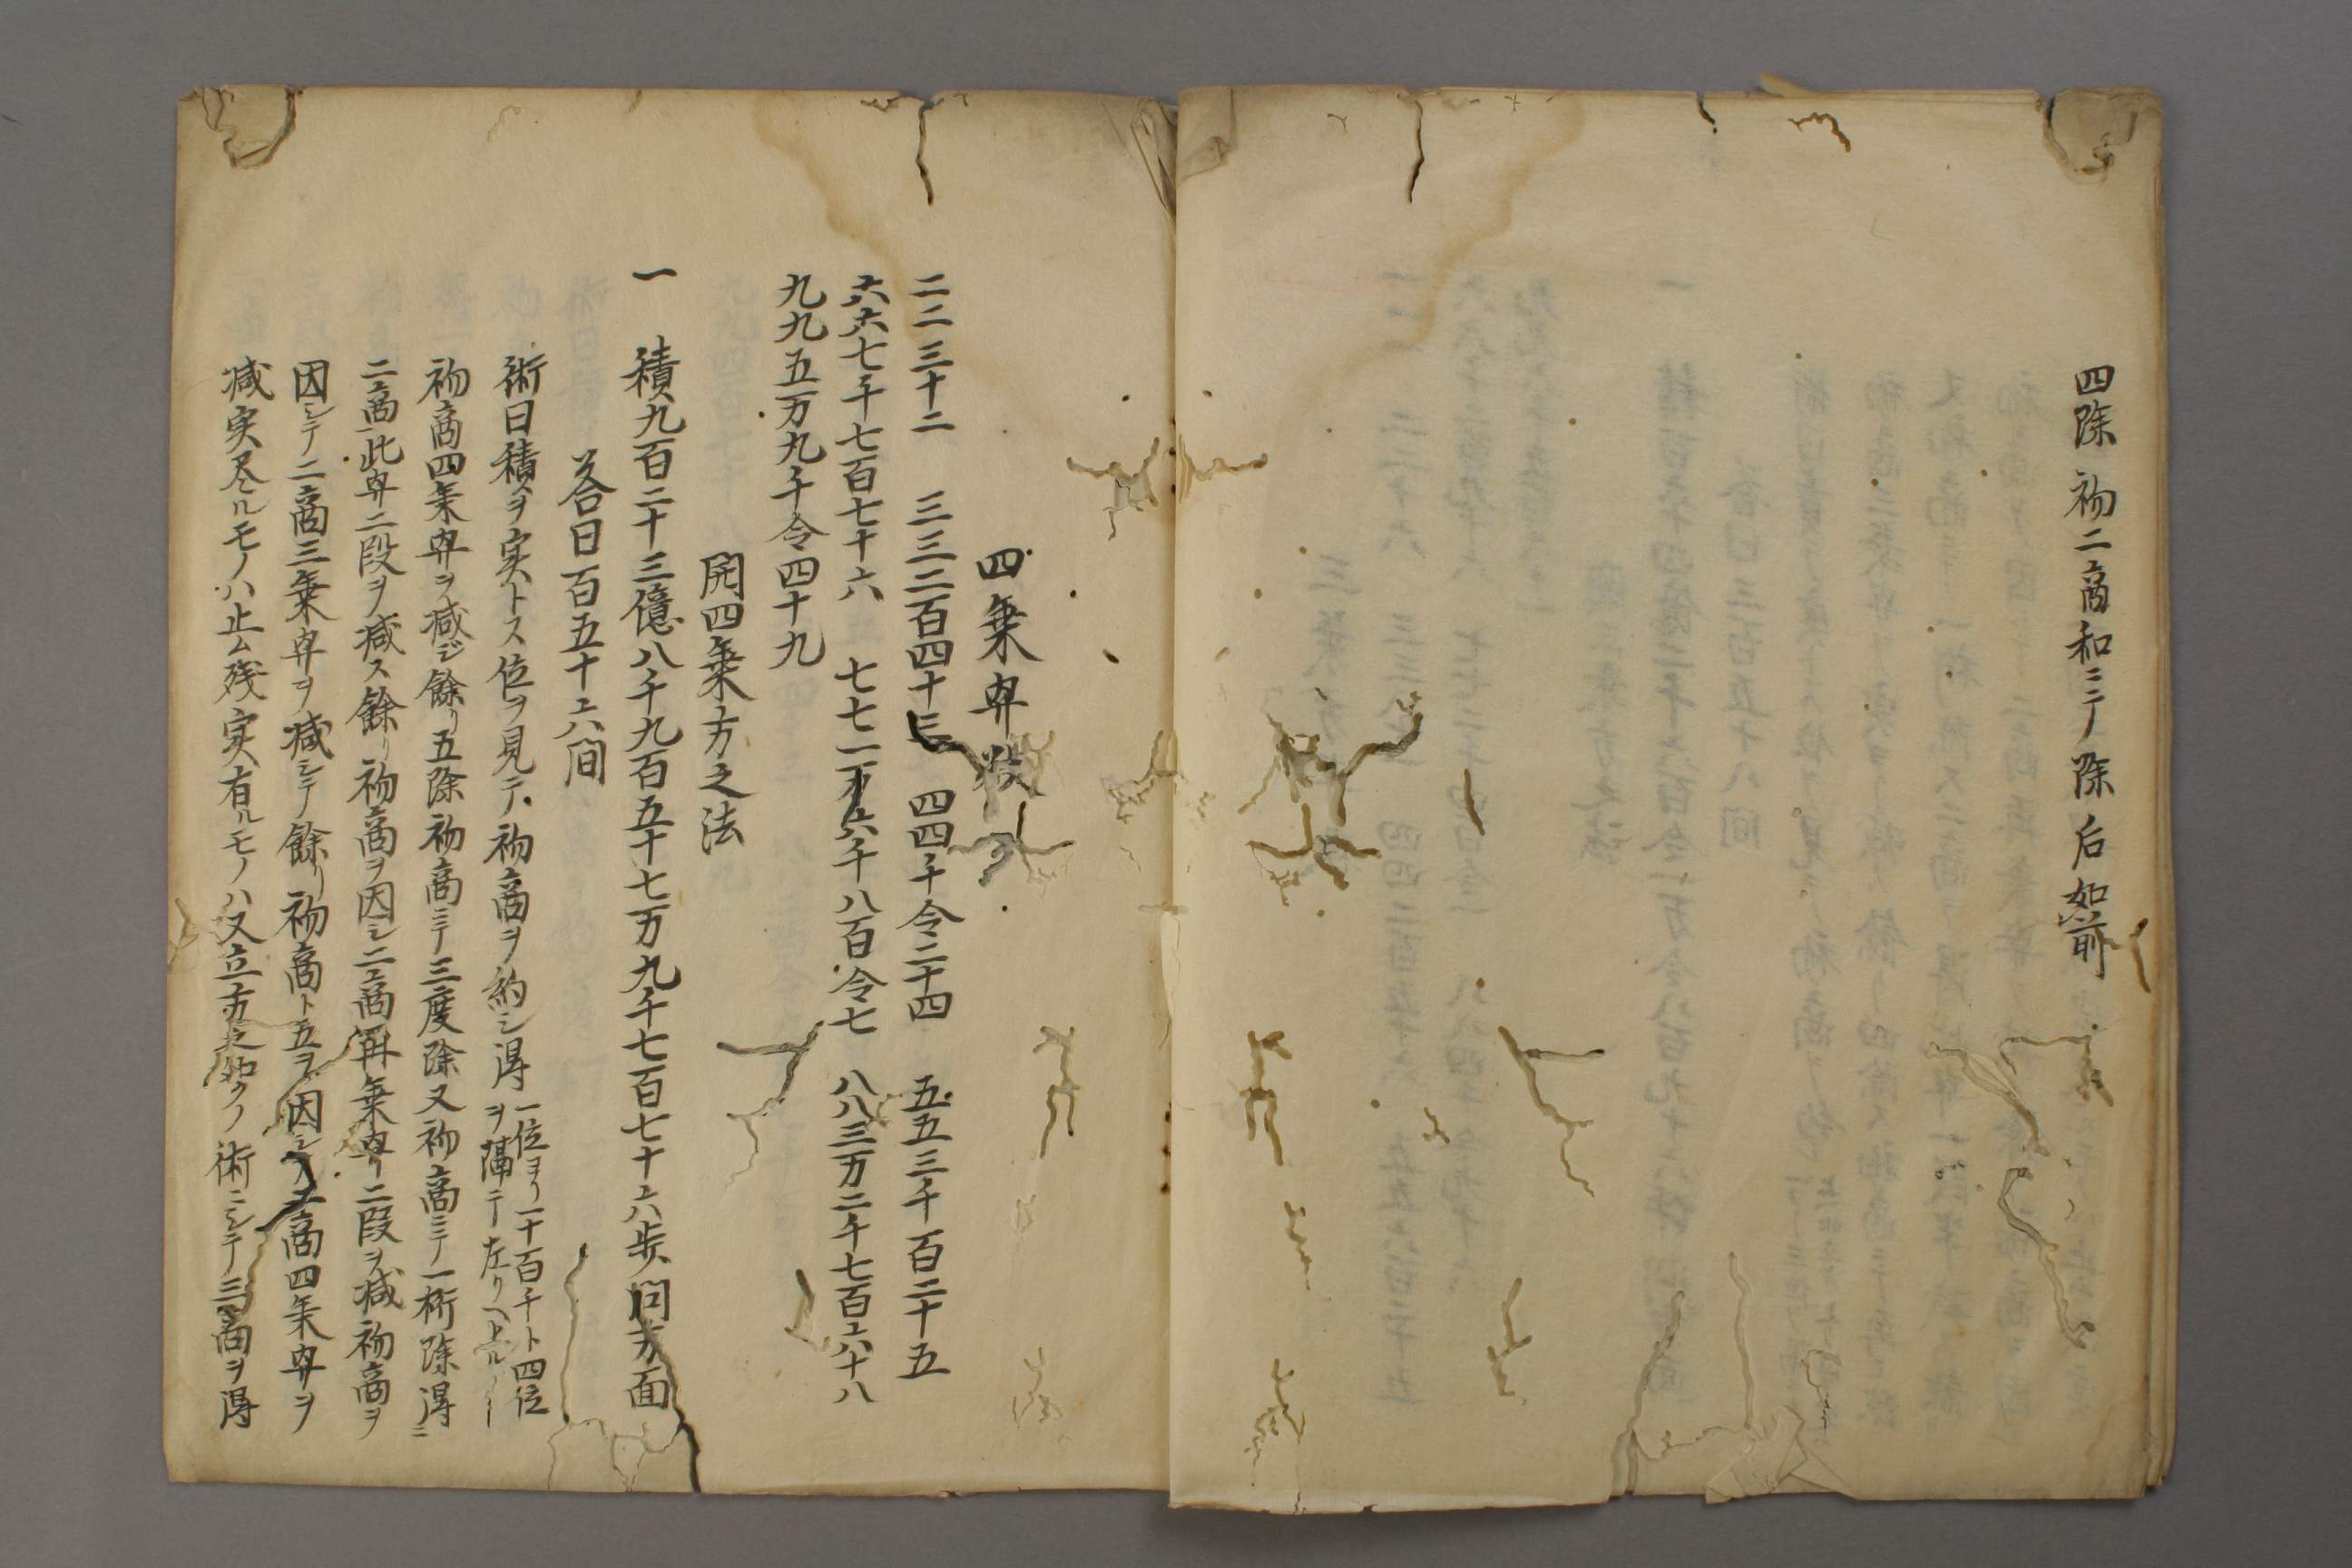 四除初二商和ニテ除后如前
四乗冪数
二二三十二 三三二百四十三 四四千令二十四 五五三千百二十五
六六七千七百七十六 七七一万六千八百令七 八八三万二千七百六十八
九九五万九千令四十九
開四乗方之法
一 積九百二十三億八千九百五十七万九千七百七十六歩問方面
答曰百五十六間
術曰積ヲ実トス位ヲ見テ初商ヲ約シ得 一位ヨリ一十百千ト四位ヲ隔テ左リヘ上ル
初商四乗冪ヲ減ジ餘リ五除初商ニテ三度除又初商ニテ一桁除得ニ
二商此冪二段ヲ減ス餘リ初商ヲ因シ二商再乗冪リ二段ヲ減初商ヲ
因シテ二商三乗冪ヲ減シテ餘リ初商ト五ヲ因シ二商四乗冪ヲ
減実尽ルモノハ止ム残実有ルモノハ又立方之如クノ術ニシテ三商ヲ得